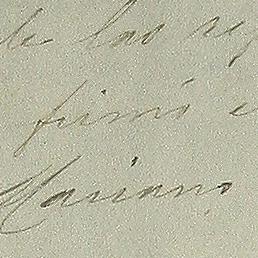 de las re
firmó e
Mariano